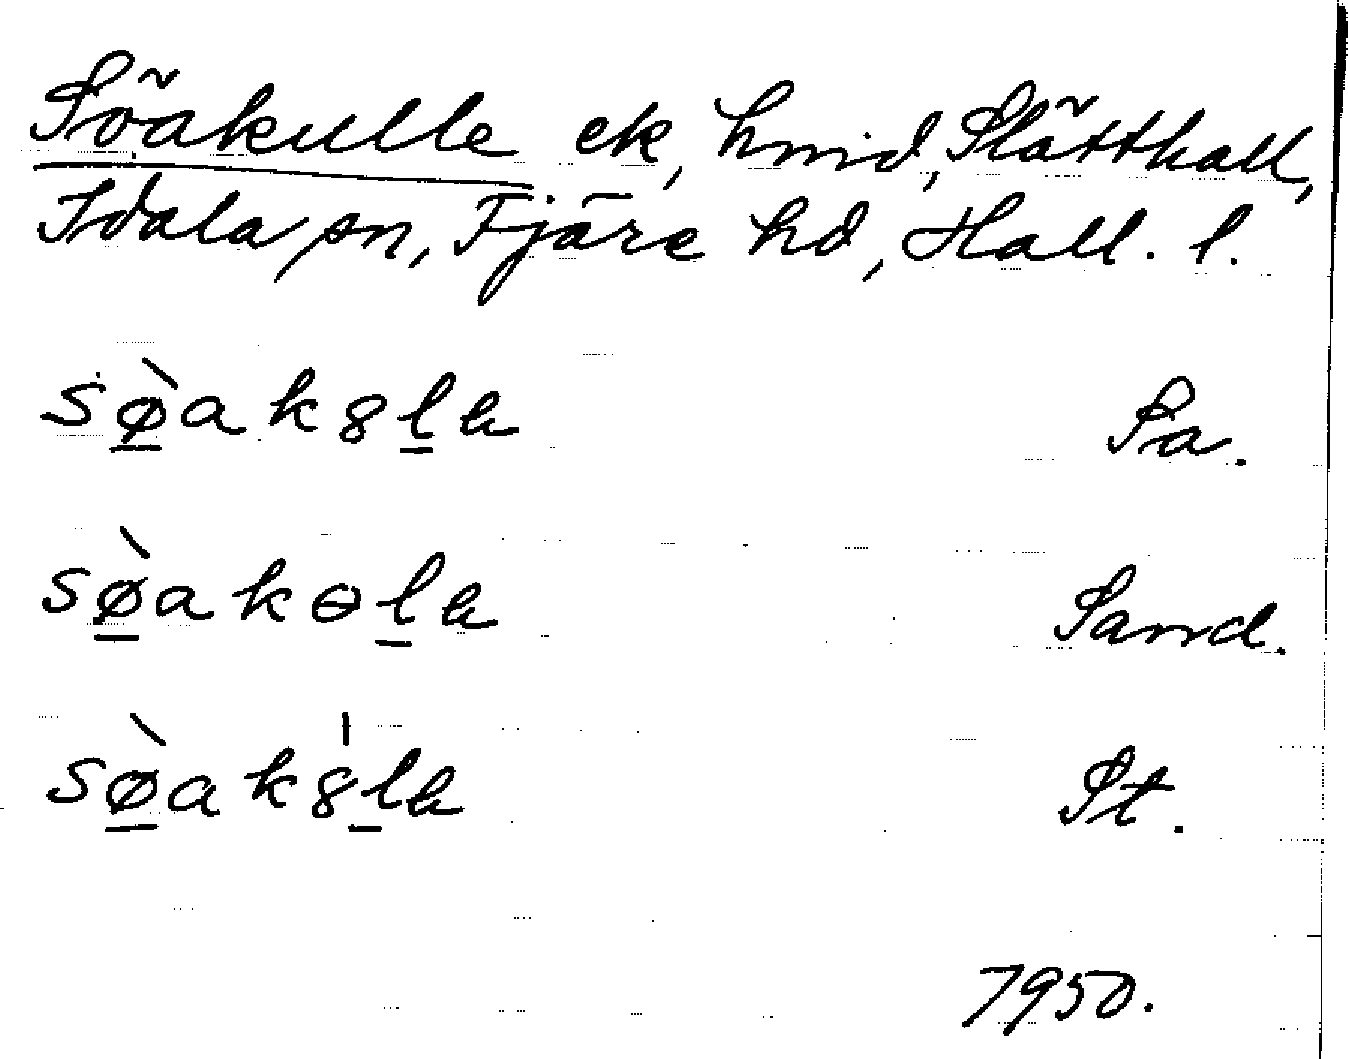 Söakulle ek, hmid, Slätthall,
Idala sn, Fjäre hd, Hall. l.
sø̠̀ak8l̠a Sa.
sø̠̀akɵl̠a Sand.
sø̠̀ak8̍l̠a St.
1950.